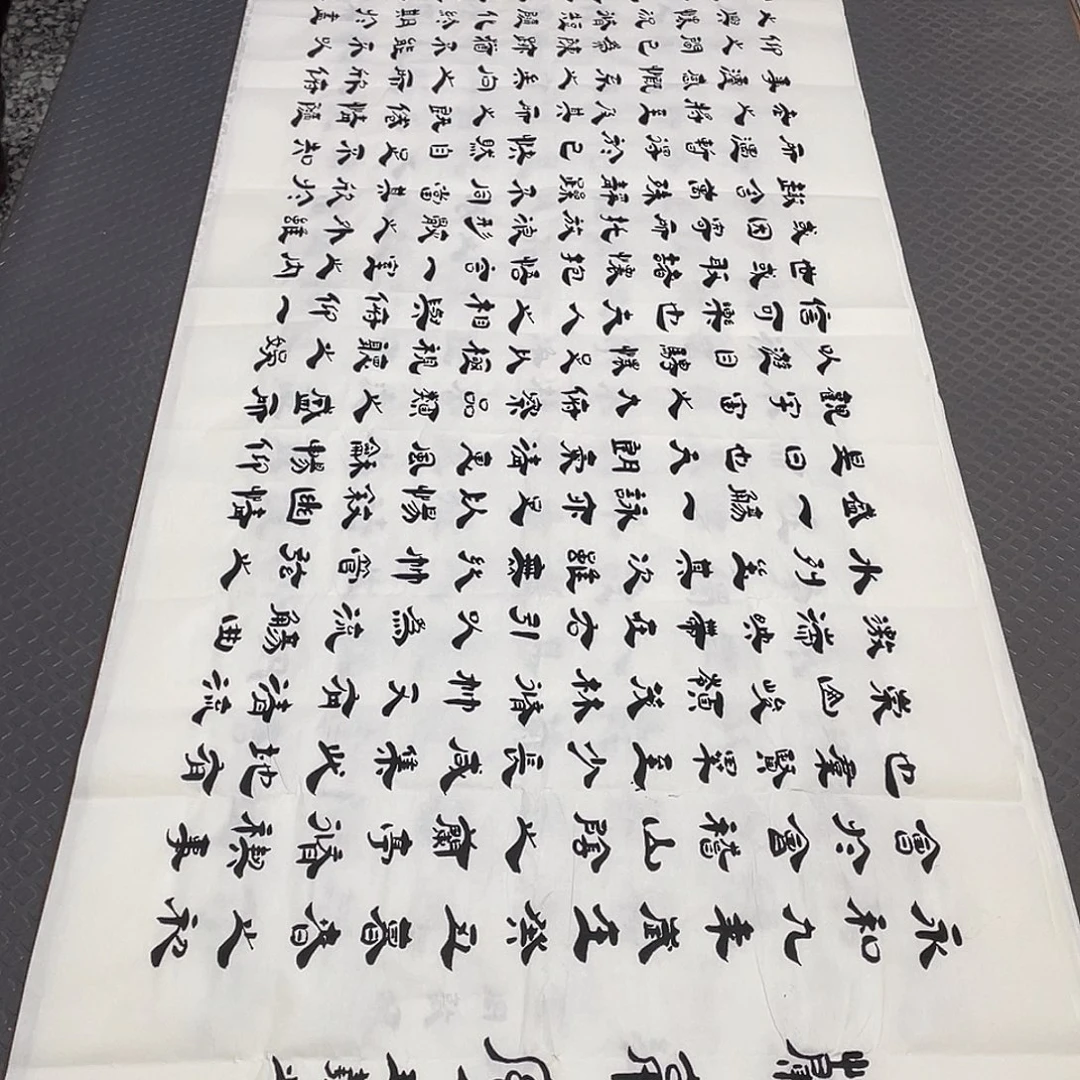 永和九年歲在癸丑暮春之初
會於會稽山陰之蘭亭脩禊事
也羣賢畢至少長咸集此地有
崇山峻領茂林脩竹又有清流
激湍映帶左右引以為流觴曲
水列坐其次雖無絲竹管弦之
盛一觴一詠亦足以暢敘幽情
是日也天朗氣清惠風和暢仰
觀宇宙之大俯察品類之盛所
以遊目騁懷足以極視聽之娛
信可樂也夫人之相與俯仰一
世或取諸懷抱悟言一室之內
或因寄所託放浪形骸之外雖
趣舍萬殊靜躁不同當其欣於
所遇暫得於己快然自足不知
老之將至及其所之既倦情隨
事遷感慨係之矣向之所欣俛
仰之間已為陳跡猶不能不以
之興懷況脩短隨化終期於盡